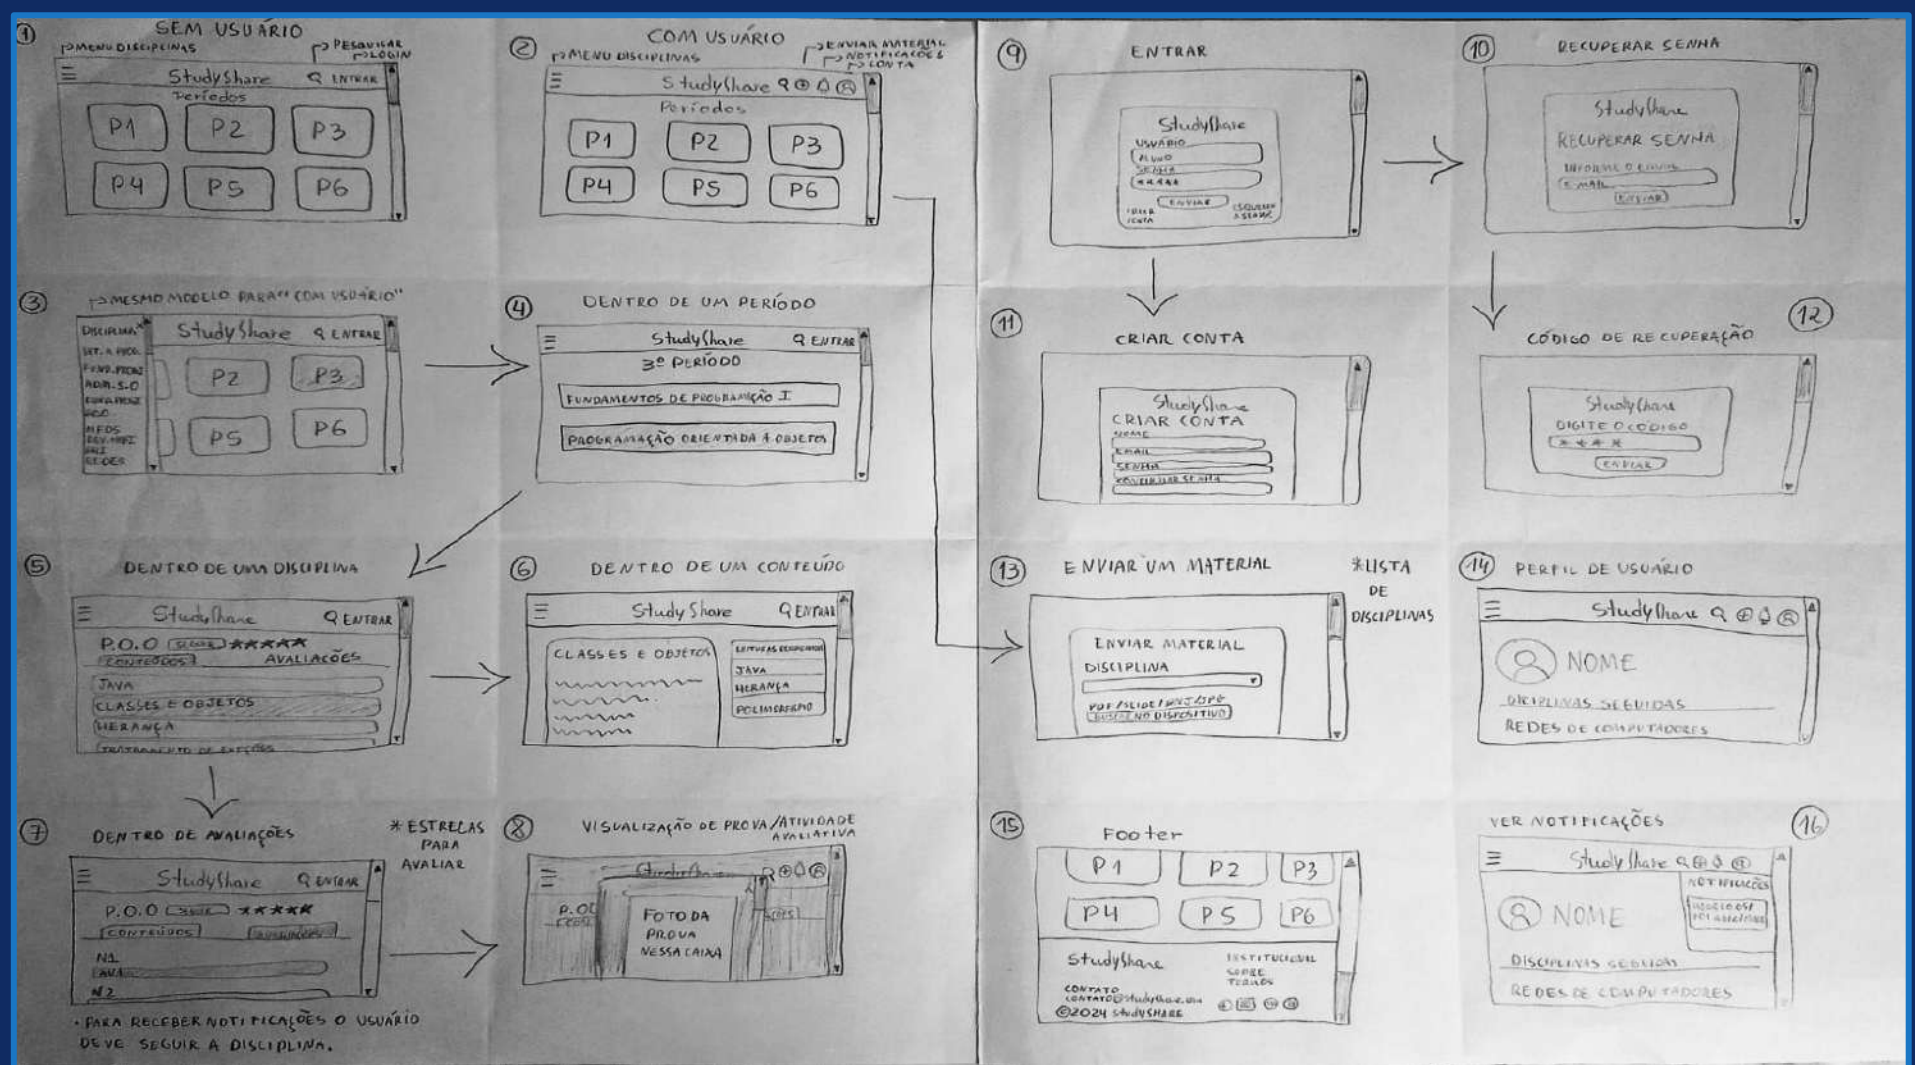 1
SEM USUÁRIO
MENU DISCIPLINAS
PESQUISAR
LOGIN
StudyShare ENTRAR
Períodos
P1 P2 P3
P4 P5 P6
2
COM USUÁRIO
MENU DISCIPLINAS
ENVIAR MATERIAL
NOTIFICAÇÕES
CONTA
StudyShare
Períodos
P1 P2 P3
P4 P5 P6
3
MESMO MODELO PARA "COM USUÁRIO"
StudyShare ENTRAR
P2 P3
P5 P6
ADM. S.O
REDES
4
DENTRO DE UM PERÍODO
StudyShare ENTRAR
3º PERÍODO
FUNDAMENTOS DE PROGRAMAÇÃO I
PROGRAMAÇÃO ORIENTADA A OBJETOS
5
DENTRO DE UMA DISCIPLINA
StudyShare ENTRAR
P.O.O SEGUIR *****
CONTEÚDOS AVALIAÇÕES
JAVA
CLASSES E OBJETOS
HERANÇA
6
DENTRO DE UM CONTEÚDO
StudyShare ENTRAR
CLASSES E OBJETOS
JAVA
HERANÇA
POLIMORFISMO
7
DENTRO DE AVALIAÇÕES
* ESTRELAS
PARA
AVALIAR
StudyShare ENTRAR
P.O.O *****
CONTEÚDOS
N1
AV1
N2
• PARA RECEBER NOTIFICAÇÕES O USUÁRIO
DEVE SEGUIR A DISCIPLINA.
8
VISUALIZAÇÃO DE PROVA/ATIVIDADE
AVALIATIVA
FOTO DA
PROVA
NESSA CAIXA
9
ENTRAR
StudyShare
USUÁRIO
ALUNO
SENHA
*****
ENVIAR
CRIAR
CONTA
10
RECUPERAR SENHA
StudyShare
RECUPERAR SENHA
INFORME O EMAIL
E-MAIL
ENVIAR
11
CRIAR CONTA
StudyShare
CRIAR CONTA
NOME
EMAIL
SENHA
CONFIRMAR SENHA
12
CÓDIGO DE RECUPERAÇÃO
StudyShare
DIGITE O CÓDIGO
****
ENVIAR
13
ENVIAR UM MATERIAL
*LISTA
DE
DISCIPLINAS
ENVIAR MATERIAL
DISCIPLINA
BUSCAR NO DISPOSITIVO
14
PERFIL DE USUÁRIO
StudyShare
NOME
DICIPLINAS SEGUIDAS
REDES DE COMPUTADORES
15
Footer
P1 P2 P3
P4 P5 P6
StudyShare
INSTITUCIONAL
SOBRE
TERMOS
CONTATO
©2024 StudySHARE
16
VER NOTIFICAÇÕES
StudyShare
NOTIFICAÇÕES
NOME
DISCIPLINAS SEGUIDAS
REDES DE COMPUTADORES